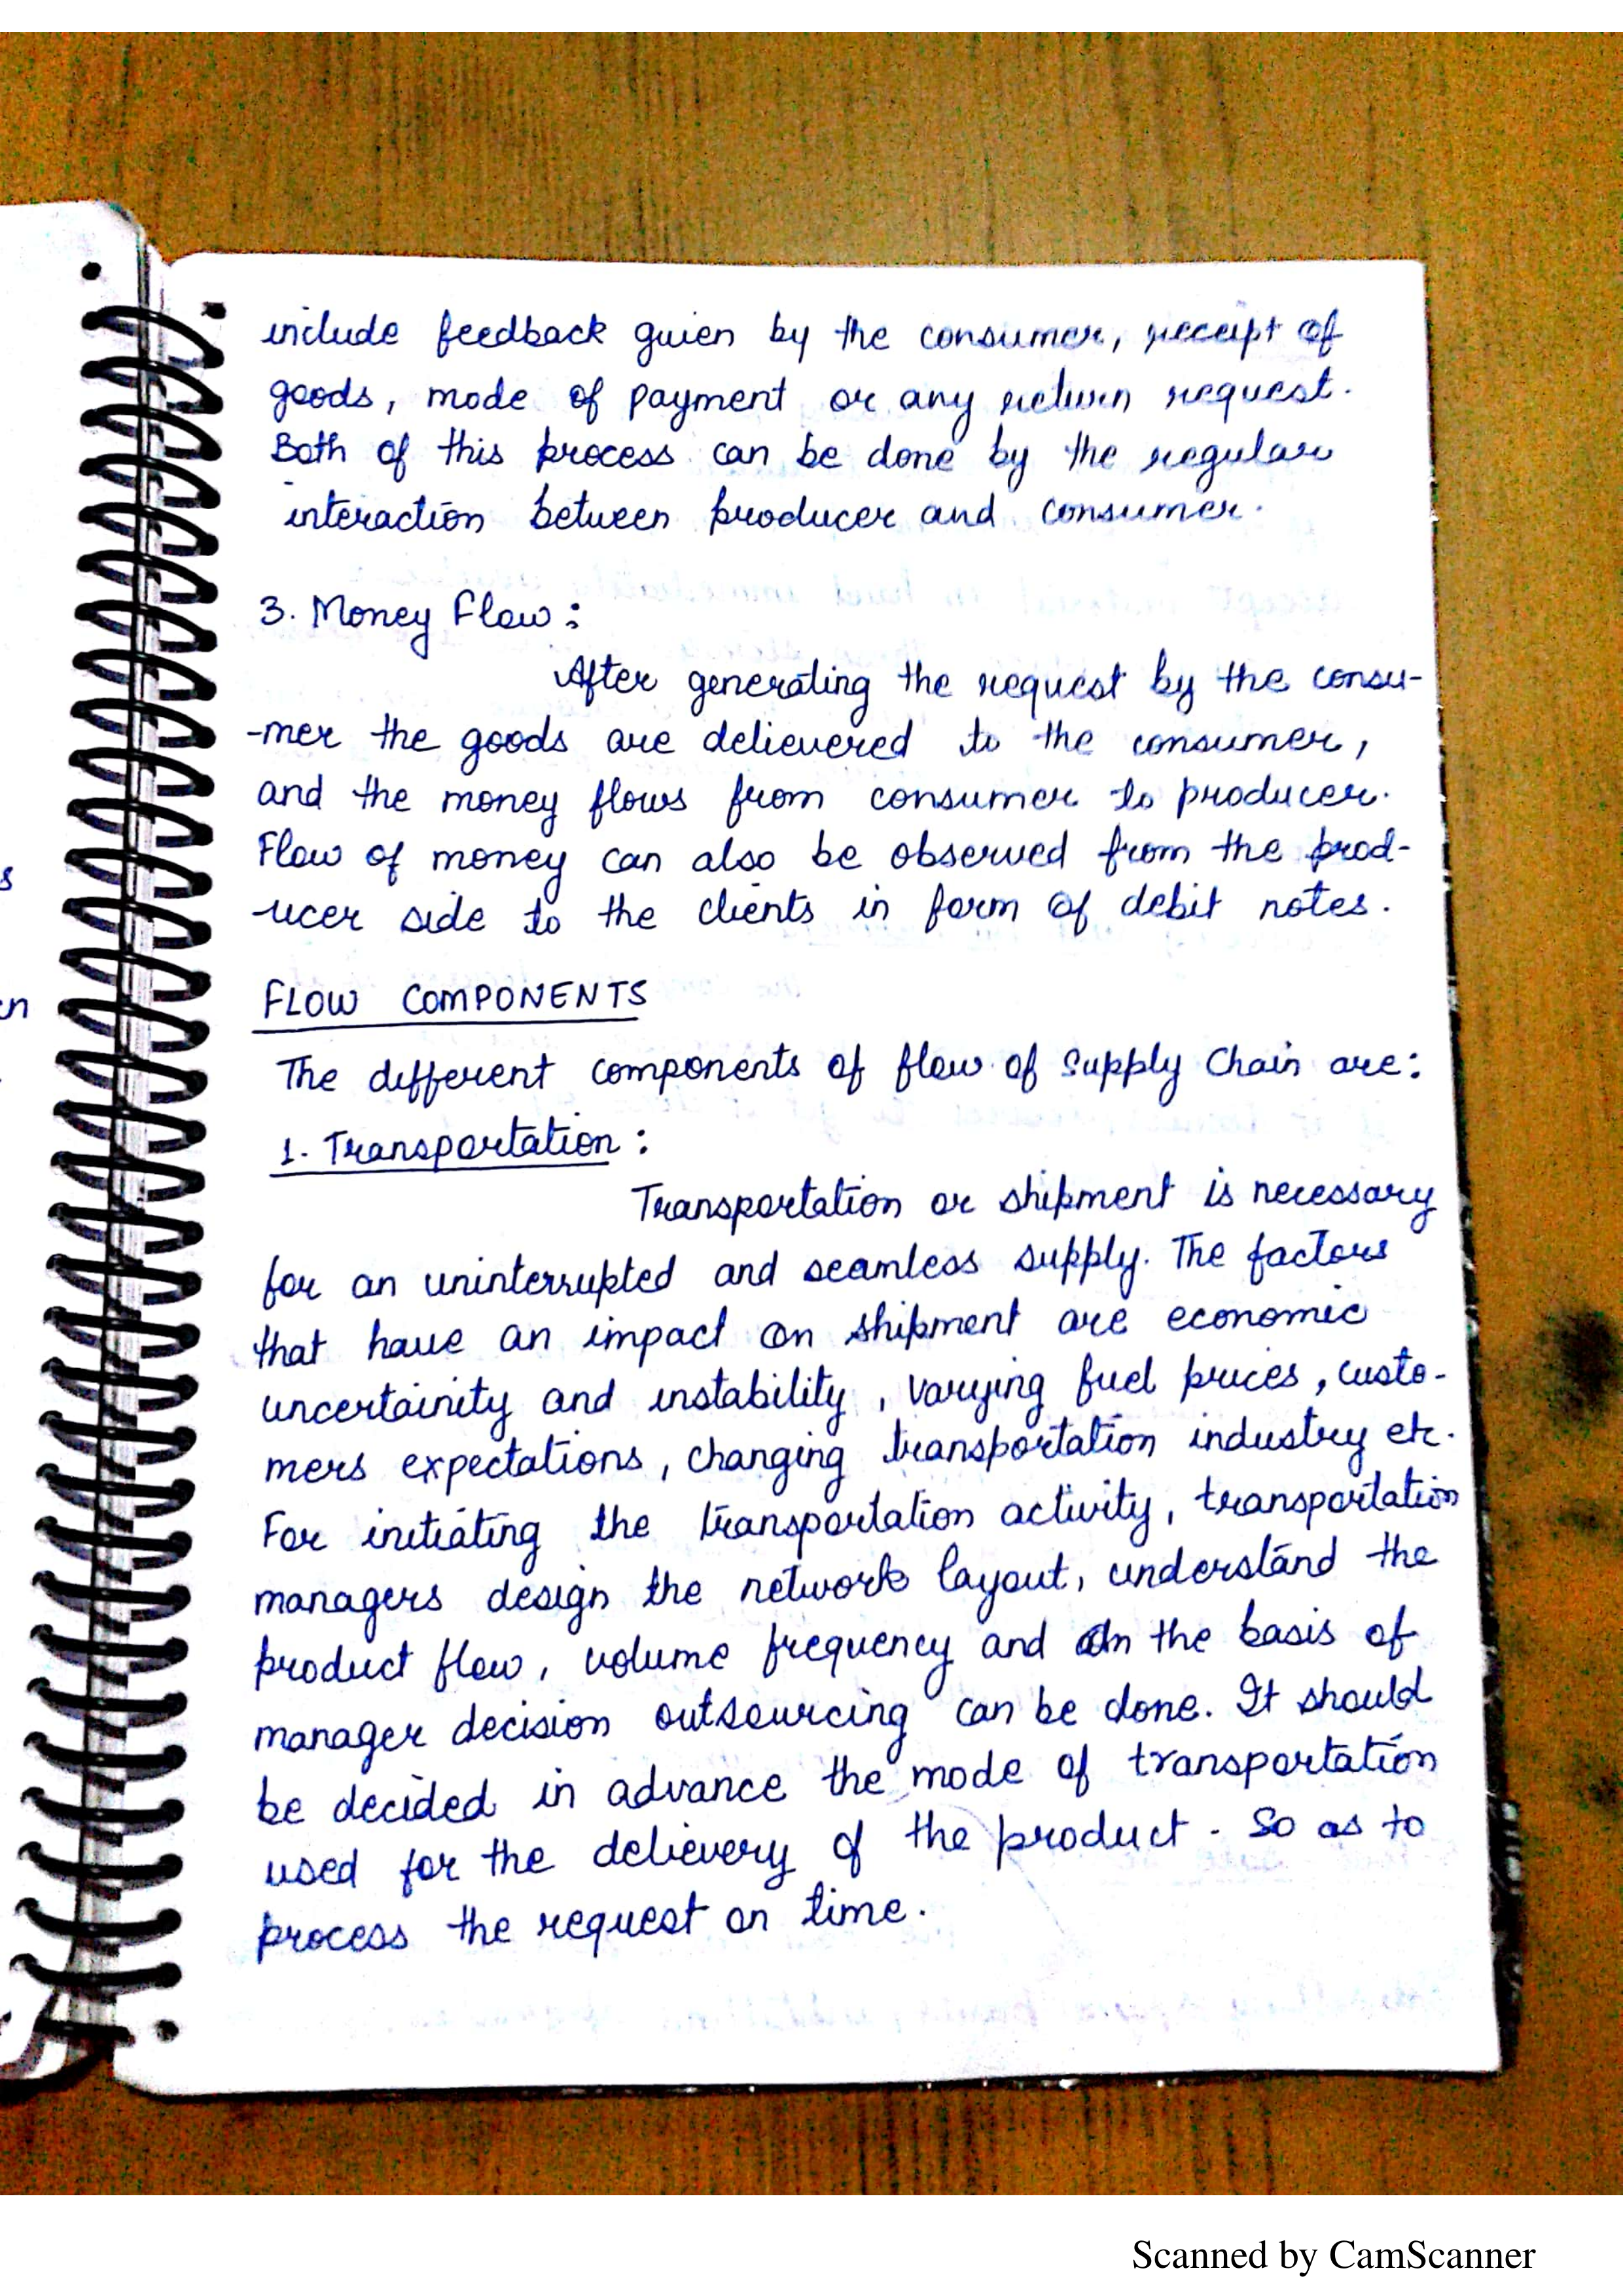 include feedback given by the consumer, receipt of
goods, mode of payment or any return request.
Both of this process can be done by the regular
interaction between producer and consumer.
3. Money Flow:
After generating the request by the consu-
-mer the goods are delievered to the consumer,
and the money flows from consumer to producer.
Flow of money can also be observed from the prod-
-ucer side to the clients in form of debit notes.
FLOW COMPONENTS
The different components of flow of Supply Chain are:
1. Transportation:
Transportation or shipment is necessary
for an uninterrupted and seamless supply. The factors
that have an impact on shipment are economic
uncertainity and instability, varying fuel prices, custo-
mers expectations, changing transportation industry etc.
For initiating the transportation activity, transportation
managers design the network layout, understand the
product flow, volume frequency and on the basis of
manager decision outsourcing can be done. It should
be decided in advance the mode of transportation
used for the delievery of the product. So as to
process the request on time.
s
en
Scanned by CamScanner